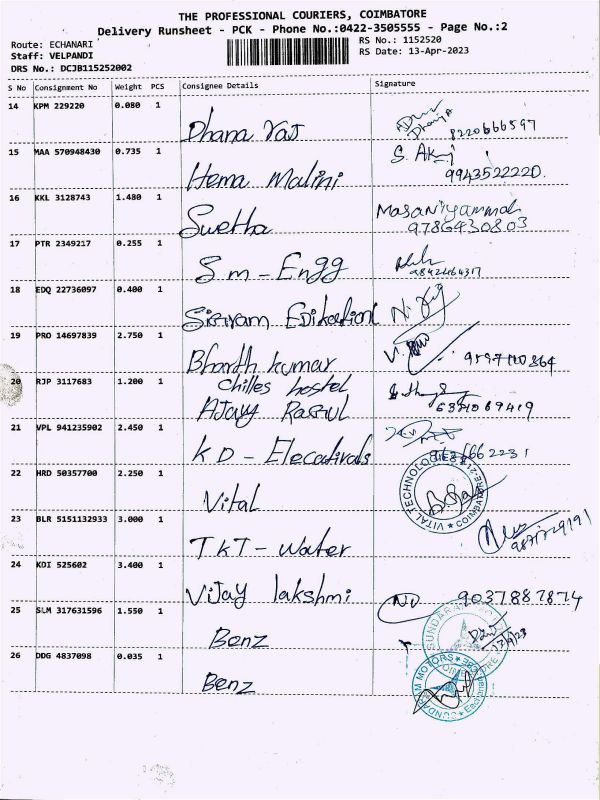 THE PROFESSIONAL COURIERS, COIMBATORE
Delivery Runsheet - PCK - Phone No.:0422-3505555 - Page No.:2
Route: ECHANARI
RS No.: 1152520
Staff: VELPANDI
RS Date: 13-Apr-2023
DRS No.: DCJB115252002
S No Consignment No Weight PCS Consignee Details Signature
14 KPM 229220 0.080 1 Dhana Raj 8220666597
15 MAA 570948430 0.735 1 Hema Malini 9943522220.
16 KKL 3128743 1.480 1 Swetha Masaniyammal
9786430803
17 PTR 2349217 0.255 1 Sm-Engg
18 EDQ 22736097 0.400 1
19 PRO 14697839 2.750 1 Bharth kumar
Chilles hostel
20 RJP 3117683 1.200 1 Ajay Rasul 6371069419
21 VPL 941235902 2.450 1 KD-Elecaticals
22 HRD 50357700 2.250 1 Vital
VITAL TECHNOLOGIES COIMBATORE-21
23 BLR 5151132933 3.000 1 TKT-water
24 KDI 525602 3.400 1 Vijay lakshmi 9037887874
25 SLM 317631596 1.550 1 Benz
13/4/23
26 DDG 4837098 0.035 1 Benz
SUNDARAM MOTORS